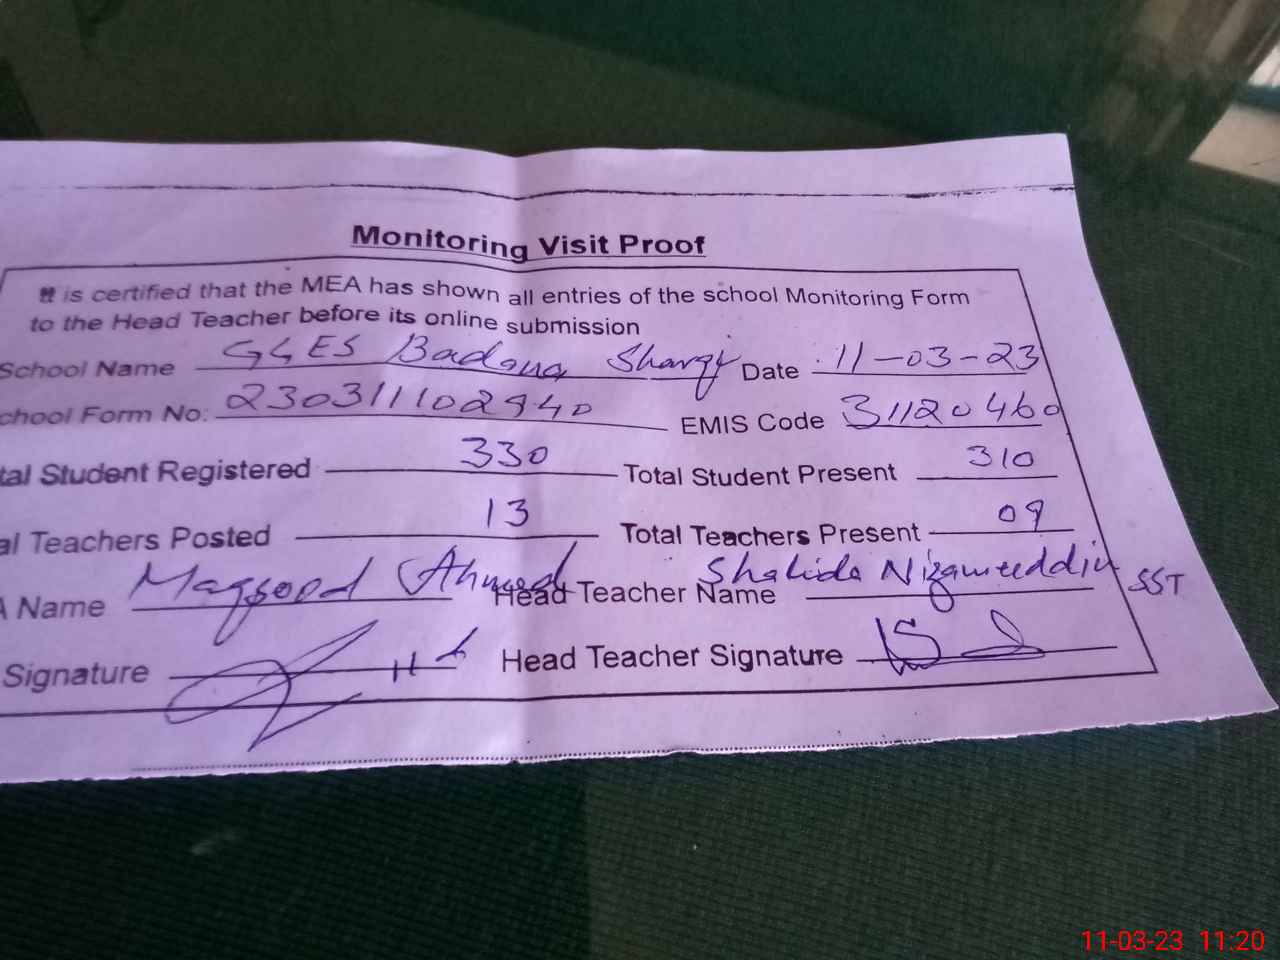 Monitoring Visit Proof
It is certified that the MEA has shown all entries of the school Monitoring Form
to the Head Teacher before its online submission
School Name GGES Badana Sharqi Date 11-03-23
chool Form No: 2303111102940 EMIS Code 31120460
tal Student Registered 330 Total Student Present 310
al Teachers Posted 13 Total Teachers Present 09
A Name Maqsood Ahmed Head Teacher Name Shahida Nizameeddin SST
Signature Head Teacher Signature
11-03-23 11:20